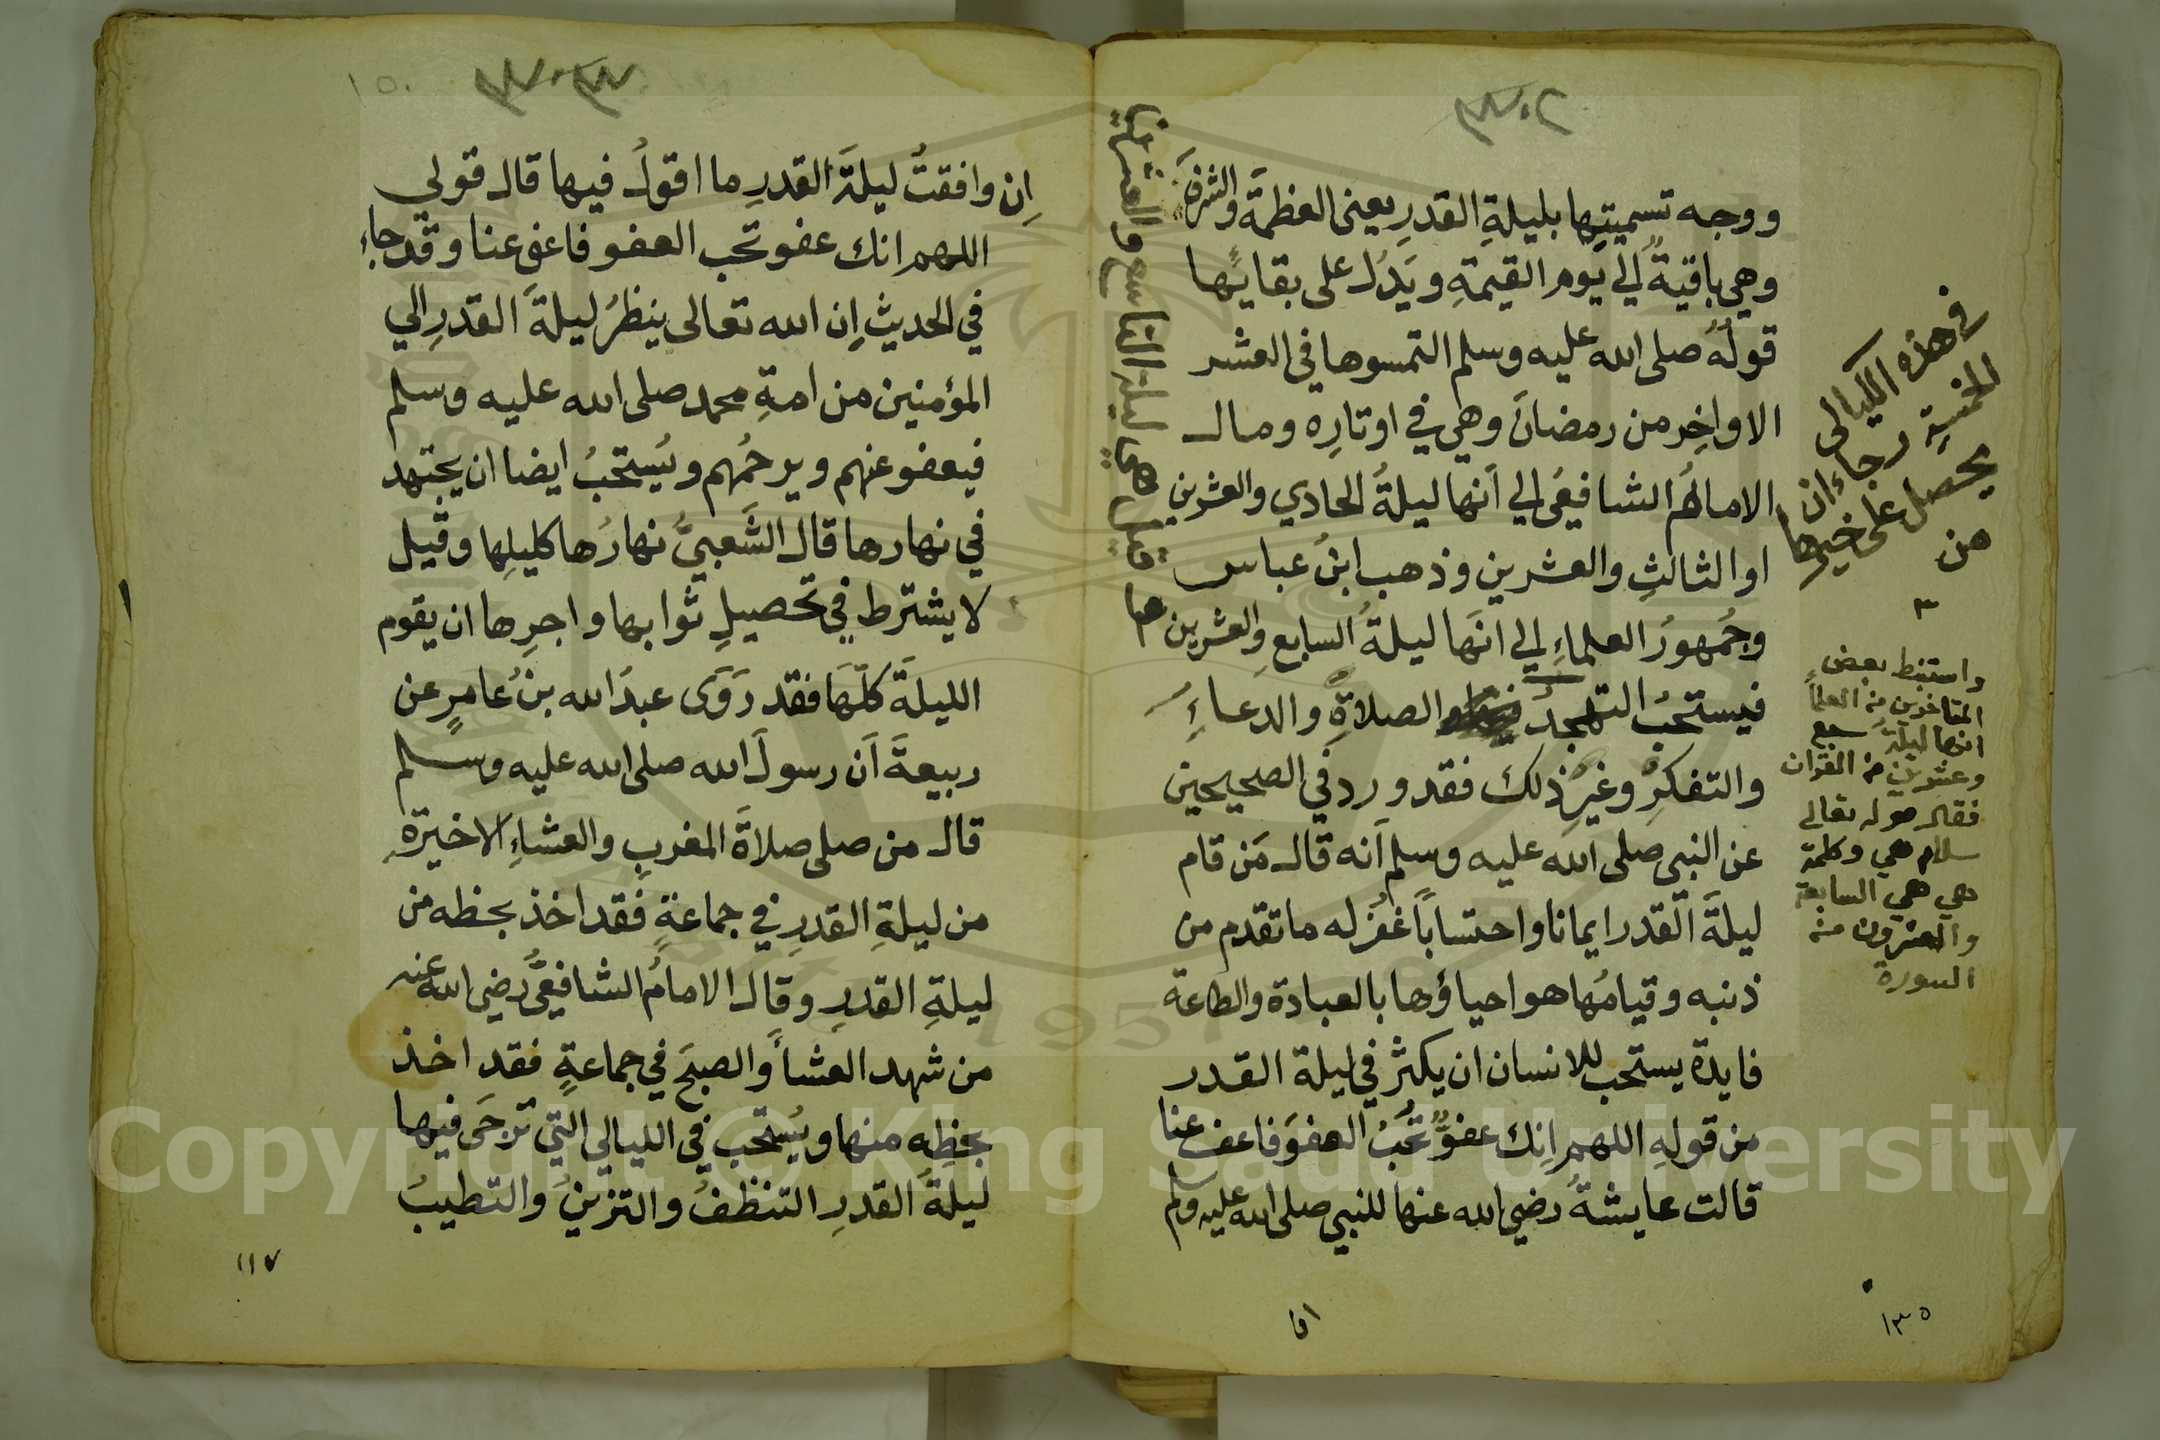 ووجه تسميتِها بليلةِ القدرِ يعنى العظمةَ والشرفَ
وهي باقيةٌ الي يوم القيمةِ ويَدُل على بقايِها
قولُه صلى الله عليه وسلم التمسوها في العشر
الاواخِر من رمضانَ وهي في اوتارِه ومال
الامامُ الشافيعُى الي اَنها ليلةُ الحادي والعشرين
او الثالثِ والعشرين وذهب ابنُ عباس
وجُمهورُ العلماءِ الي انَها ليلةُ السابعِ والعشرين
فيستحبُ التهجدُ والصلاةِ والدعاءِ
والتفكرِ وغيرِ ذلك فقد ورد في الصحيحين
عن النبى صلى الله عليه وسلم اَنه قال مَن قام
ليلةَ القدر ايمانا واحتساباً غُفرَ له ما تقدم من
ذنبه وقيامُها هو احياؤها بالعبادة والطاعة
فايدة يستحب للانسان ان يكثر في ليلة القدر
من قولِهِ اللهم اِنك عفوٌّ تحُبُ العفوَ فاعف عنا
قالت عايشةُ رضي الله عنها للنبي صلى الله عليه وسلم
وقيل هي ليلة التاسع والعشرين
في هذه الليالى
الخمسةِ رجاءان
يحصل على خيرها
من
٣
واستنبط بعض
المتاخرين من العلماء
انها ليلةَ سبع
وعشرين من القران
فقال قوله تعالى
سلام هي وكلمة
هي هي السابعة
والعشرون من
السورة
١٣٥
ان وافقتُ ليلةَ القدرِ ما اقولُ فيها قال قولي
اللهم انك عفو تحب العفو فاعف عنا وقد جاء
في الحديث اِن الله تعالى ينظرُ ليلةَ القدرِ الي
المؤمنين من امةِ محمد صلى الله عليه وسلم
فيعفو عنهم ويرحُمهم ويُستحبُ ايضا ان يجتهد
في نهارها قال الشَعبيُّ نهارُها كليلِها وقيل
لا يشترط في تحصيلِ ثوابها واجرِها ان يقوم
الليلةَ كلَّها فقد رَوَى عبدُ الله بنُ عامرٍ عن
ربيعةَ اَن رسولَ الله صلى الله عليه وسلم
قال من صلى صلاةَ المغربِ والعشاءِ الاخيرة
من ليلةِ القدرِ في جماعةٍ فقد اخذ بحظه من
ليلةِ القدرِ وقال الامامُ الشافيعُّى رضى الله عنه
من شهد العشأ والصبحَ في جماعةٍ فقد اخذ
بحظِه منها ويُستحب في الليالي التي تُرجَى فيها
ليلةُ القدرِ التنظفُ والتزينُ والتطيبُ
١١٧
Copyright © King Saud University
1957